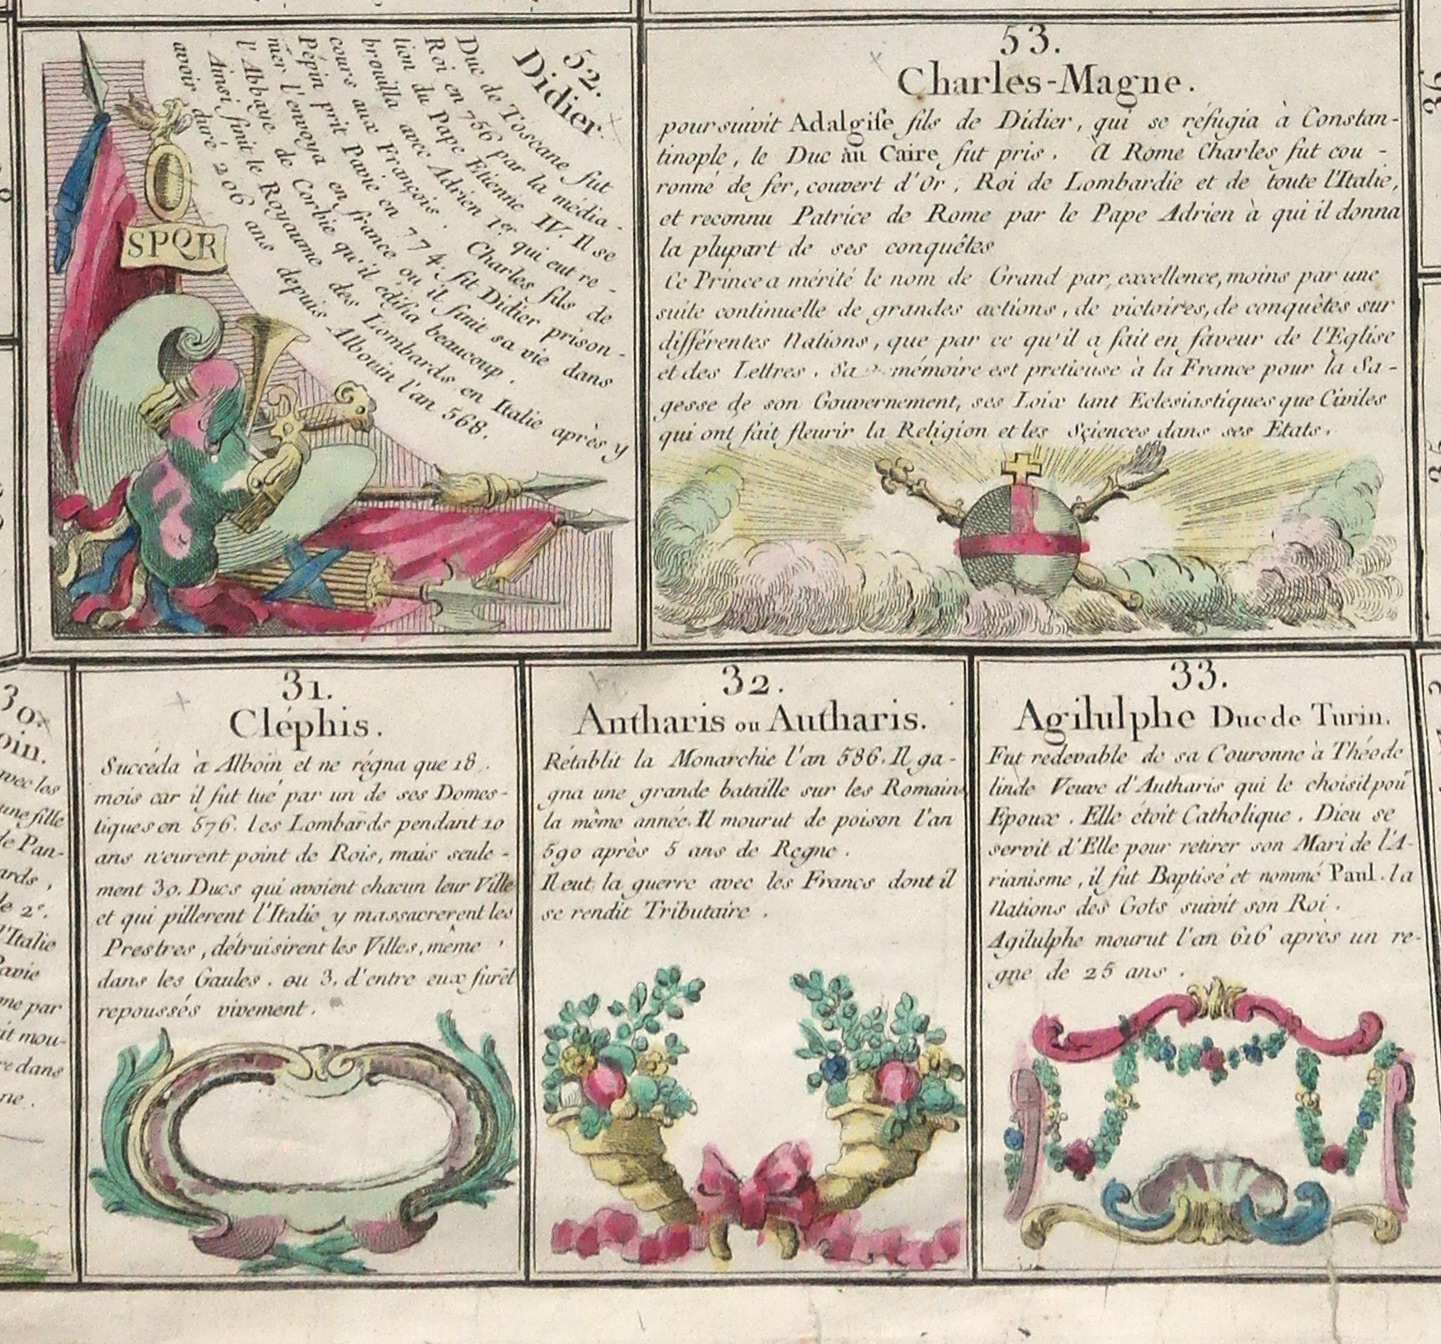 52.
Didier.
Duc de Toscane fut
Roi en 756 par la média-
tion du Pape Etienne IV. Il se
brouilla avec Adrien 1er qui eut re-
cours aux François. Charles fils de
Pépin prit Pavie en 774. fit Didier prison-
nier l'envoya en france ou il finit sa vie dans
l'Abbaye de Corbie qu'il édifia beaucoup.
Ainsi finit le Royaume des Lombards en Italie après y
avoir duré 206 ans depuis Alboin l'an 568.
SPQR
53.
Charles-Magne.
poursuivit Adalgise fils de Didier, qui se réfugia à Constan-
tinople, le Duc au Caire fut pris. A Rome Charles fut cou-
ronné de fer, couvert d'Or, Roi de Lombardie et de toute l'Italie,
et reconnu Patrice de Rome par le Pape Adrien à qui il donna
la plupart de ses conquêtes
Ce Prince a mérité le nom de Grand par excellence, moins par une
suite continuelle de grandes actions, de victoires, de conquêtes sur
différentes Nations, que par ce qu'il a fait en faveur de l'Eglise
et des Lettres. Sa mémoire est pretieuse à la France pour la Sa-
gesse de son Gouvernement, ses Loix tant Eclesiastiques que Civiles
qui ont fait fleurir la Religion et les Sciences dans ses Etats.
36.
35
30.
oin.
avec les
une fille
de Pan-
ards,
le 2e.
l'Italie
Pavie
me par
it mou-
re dans
ne.
31.
Cléphis.
Succéda à Alboin et ne régna que 18.
mois car il fut tué par un de ses Domes-
tiques en 576. les Lombards pendant 10
ans n'eurent point de Rois, mais seule-
ment 30. Ducs qui avoient chacun leur Ville
et qui pillerent l'Italie y massacrerent les
Prestres, détruisirent les Villes, même
dans les Gaules. ou 3. d'entre eux furêt
repoussés vivement.
32.
Antharis ou Autharis.
Rétablit la Monarchie l'an 586. Il ga-
gna une grande bataille sur les Romains
la même année. Il mourut de poison l'an
590 après 5 ans de Regne.
Il eut la guerre avec les Francs dont il
se rendit Tributaire.
33.
Agilulphe Duc de Turin.
Fut redevable de sa Couronne à Théode
linde Veuve d'Autharis qui le choisit poũ
Epoux. Elle étoit Catholique. Dieu se
servit d'Elle pour retirer son Mari de l'A-
rianisme, il fut Baptisé et nommé Paul. la
Nations des Gots suivit son Roi.
Agilulphe mourut l'an 616 après un re-
gne de 25 ans.